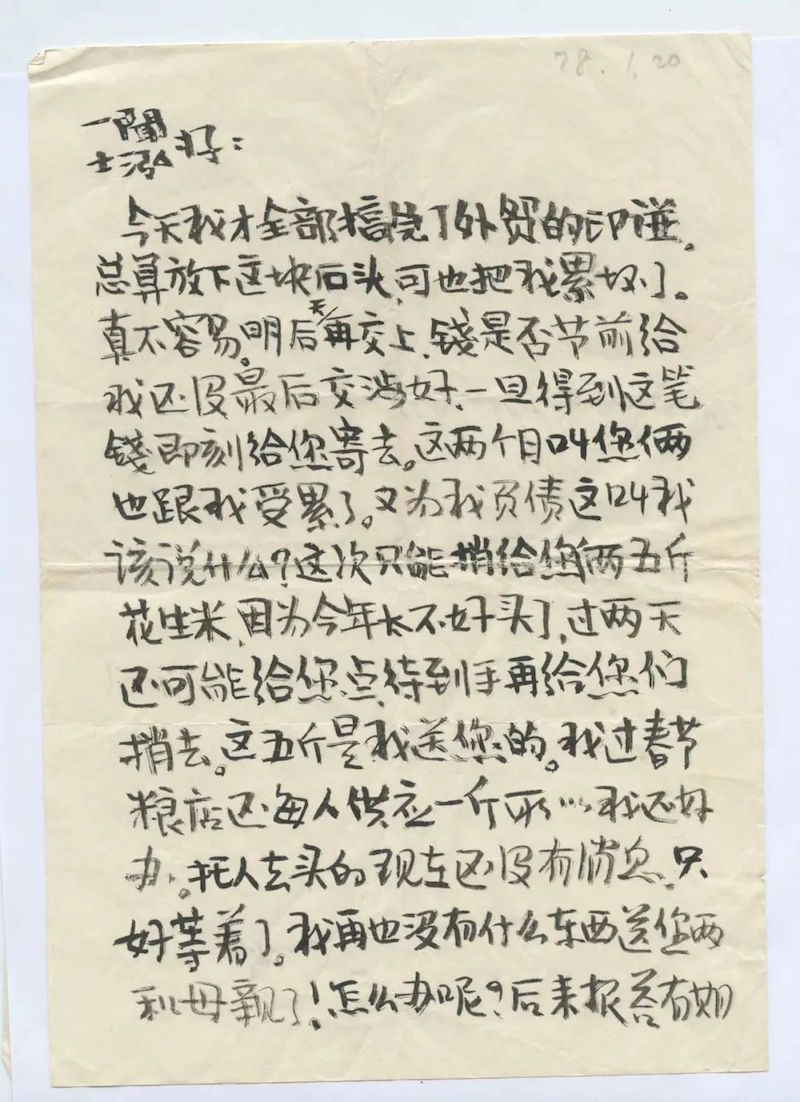 78.1.20
一闻
士泓 好:
今天我才全部搞完了外贸的印谜。
总算放下这块石头,可也把我累坏了。
真不容易。明后天再交上,钱是否节前给
我还没最后交涉好,一旦得到这笔
钱即刻给您寄去。这两个月叫您俩
也跟我受累了。又为我负债这叫我
该说什么?这次只能捎给您两五斤
花生米,因为今年太不好买了,过两天
还可能给您点,待到手再给您们
捎去。这五斤是我送您的。我过春节
粮店还每人供应一斤 我还好
办。托人去买的现在还没有消息,只
好等着了。我再也没有什么东西送您两
和母亲了!怎么办呢?后来报答有期